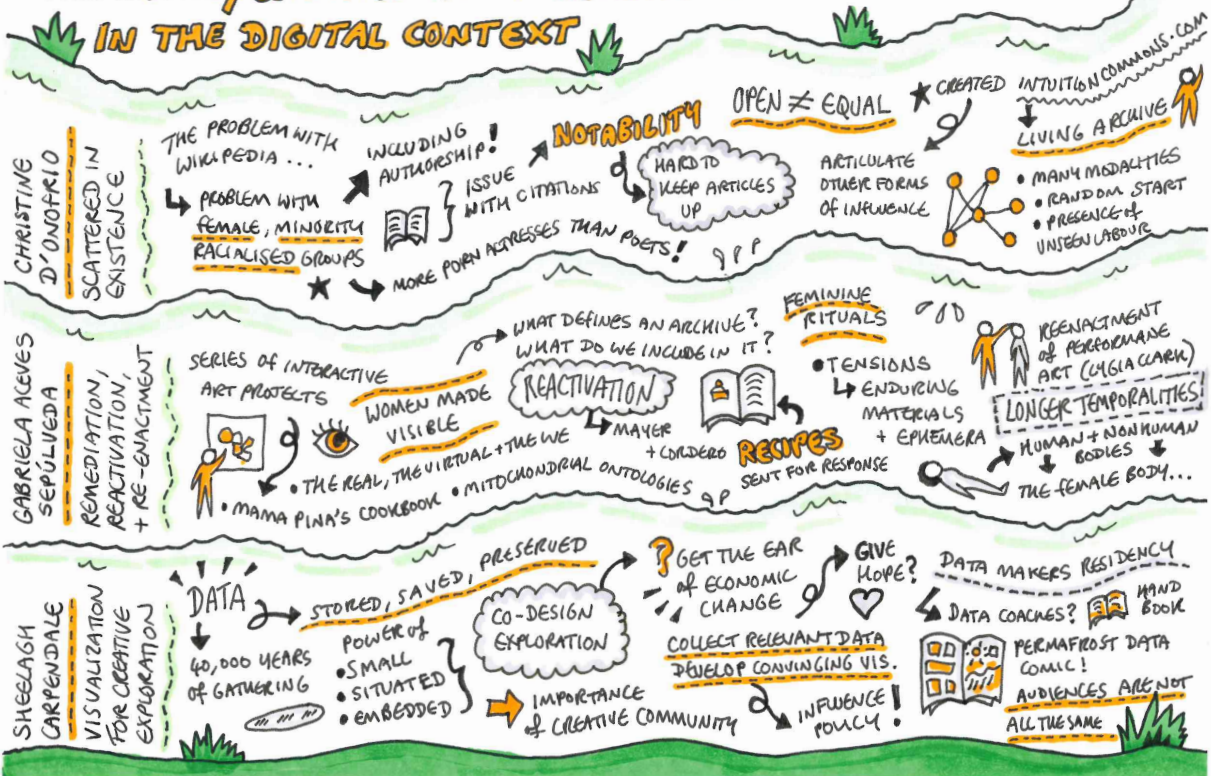 IN THE DIGITAL CONTEXT
CHRISTINE
D'ONOFRIO
SCATTERED IN
EXISTENCE
THE PROBLEM WITH
WIKIPEDIA ...
PROBLEM WITH
FEMALE, MINORITY
RACIALISED GROUPS
INCLUDING
AUTHORSHIP!
ISSUE
WITH CITATIONS
MORE PORN ACTRESSES THAN POETS!
NOTABILITY
HARD TO
KEEP ARTICLES
UP
OPEN ≠ EQUAL
CREATED
INTUITIONCOMMONS.COM
ARTICULATE
OTHER FORMS
OF INFLUENCE
LIVING ARCHIVE
• MANY MODALITIES
• RANDOM START
• PRESENCE OF
UNSEEN LABOUR
GABRIELA ACEVES
SEPÚLVEDA
REMEDIATION,
REACTIVATION,
+ RE-ENACTMENT
SERIES OF INTERACTIVE
ART PROTECTS
WOMEN MADE
VISIBLE
• THE REAL, THE VIRTUAL + THE WE
• MAMA PINA'S COOKBOOK
• MITOCHONDRIAL ONTOLOGIES
WHAT DEFINES AN ARCHIVE?
WHAT DO WE INCLUDE IN IT?
REACTIVATION
MAYER
+ CORDERO
RECIPES
SENT FOR RESPONSE
FEMININE
RITUALS
• TENSIONS
ENDURING
MATERIALS
+ EPHEMERA
REENACTMENT
OF PERFORMANE
ART (LYGIA CLARK)
LONGER TEMPORALITIES
HUMAN + NONHUMAN
BODIES
THE FEMALE BODY...
SHEELAGH
CARPENDALE
VISUALIZATION
FOR CREATIVE
EXPLORATION
DATA
40,000 YEARS
OF GATHERING
STORED, SAVED, PRESERVED
POWER OF
• SMALL
• SITUATED
• EMBEDDED
CO-DESIGN
EXPLORATION
IMPORTANCE
OF CREATIVE COMMUNITY
? GET THE EAR
OF ECONOMIC
CHANGE
GIVE
HOPE?
COLLECT RELEVANT DATA
DEVELOP CONVINGING VIS.
INFLUENCE
POLICY!
DATA MAKERS RESIDENCY
DATA COACHES?
HAND
BOOK
PERMAFROST DATA
COMIC!
AUDIENCES ARE NOT
ALL THE SAME